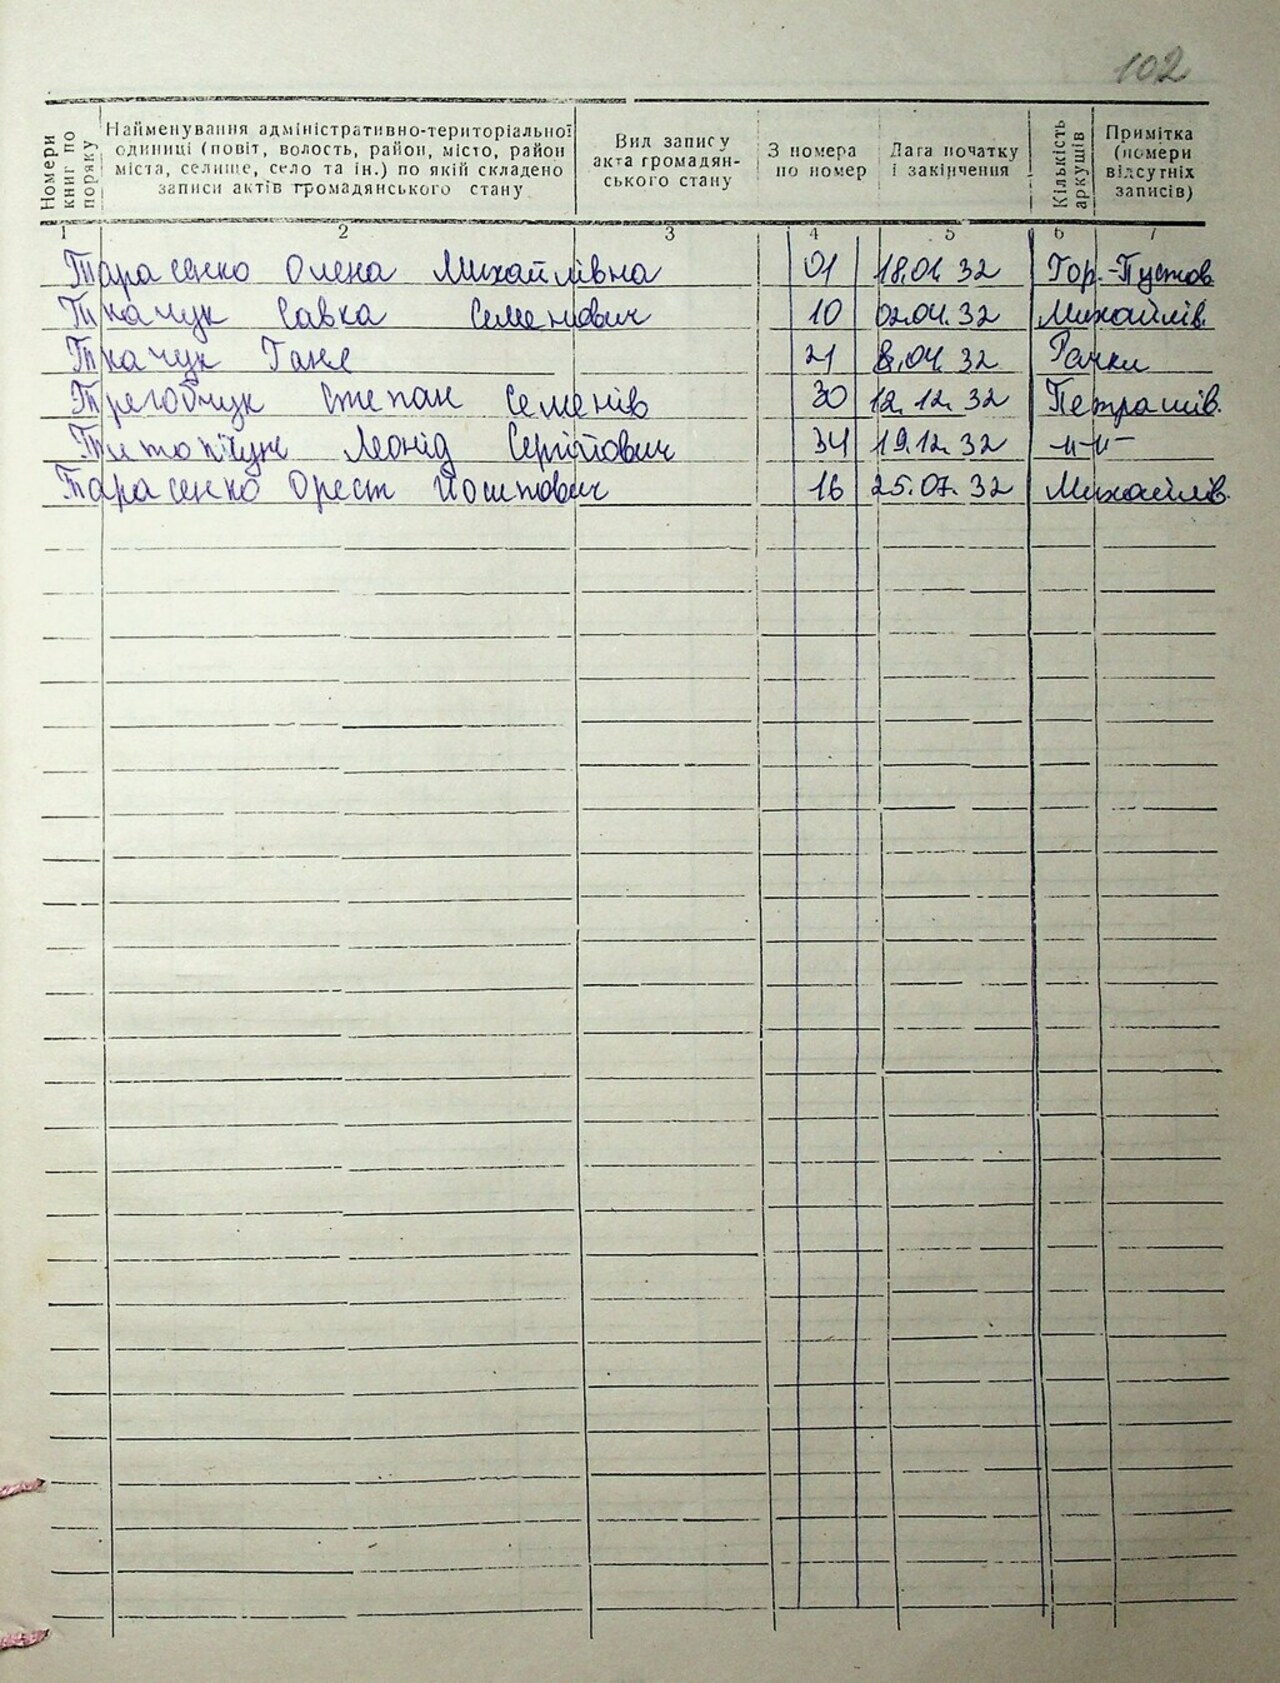 102
Номери книг по порядку
Найменування адміністративно-територіальної
одиниці (повіт, волость, район, місто, район
міста, селище, село та ін.) по якій складено
записи актів громадянського стану
Вид запису
акта громадян-
ського стану
З номера
по номер
Дата початку
і закінчення
Кількість аркушів
Примітка
(номери
відсутніх
записів)
1 2 3 4 5 6 7
Тарасенко Олена Михайлівна 01 18.01.32 Гор.-Пустов
Ткачук Савка Семенович 10 02.04.32 Михайлів.
Ткачук Ганя 21 8.04.32 Рачки
Трегобчук Степан Семенів 30 12.12.32 Петрашів.
Леонід Сергійович 34 19.12.32 -"-"-
Тарасенко Орест Йосипович 16 25.07.32 Михайлів.